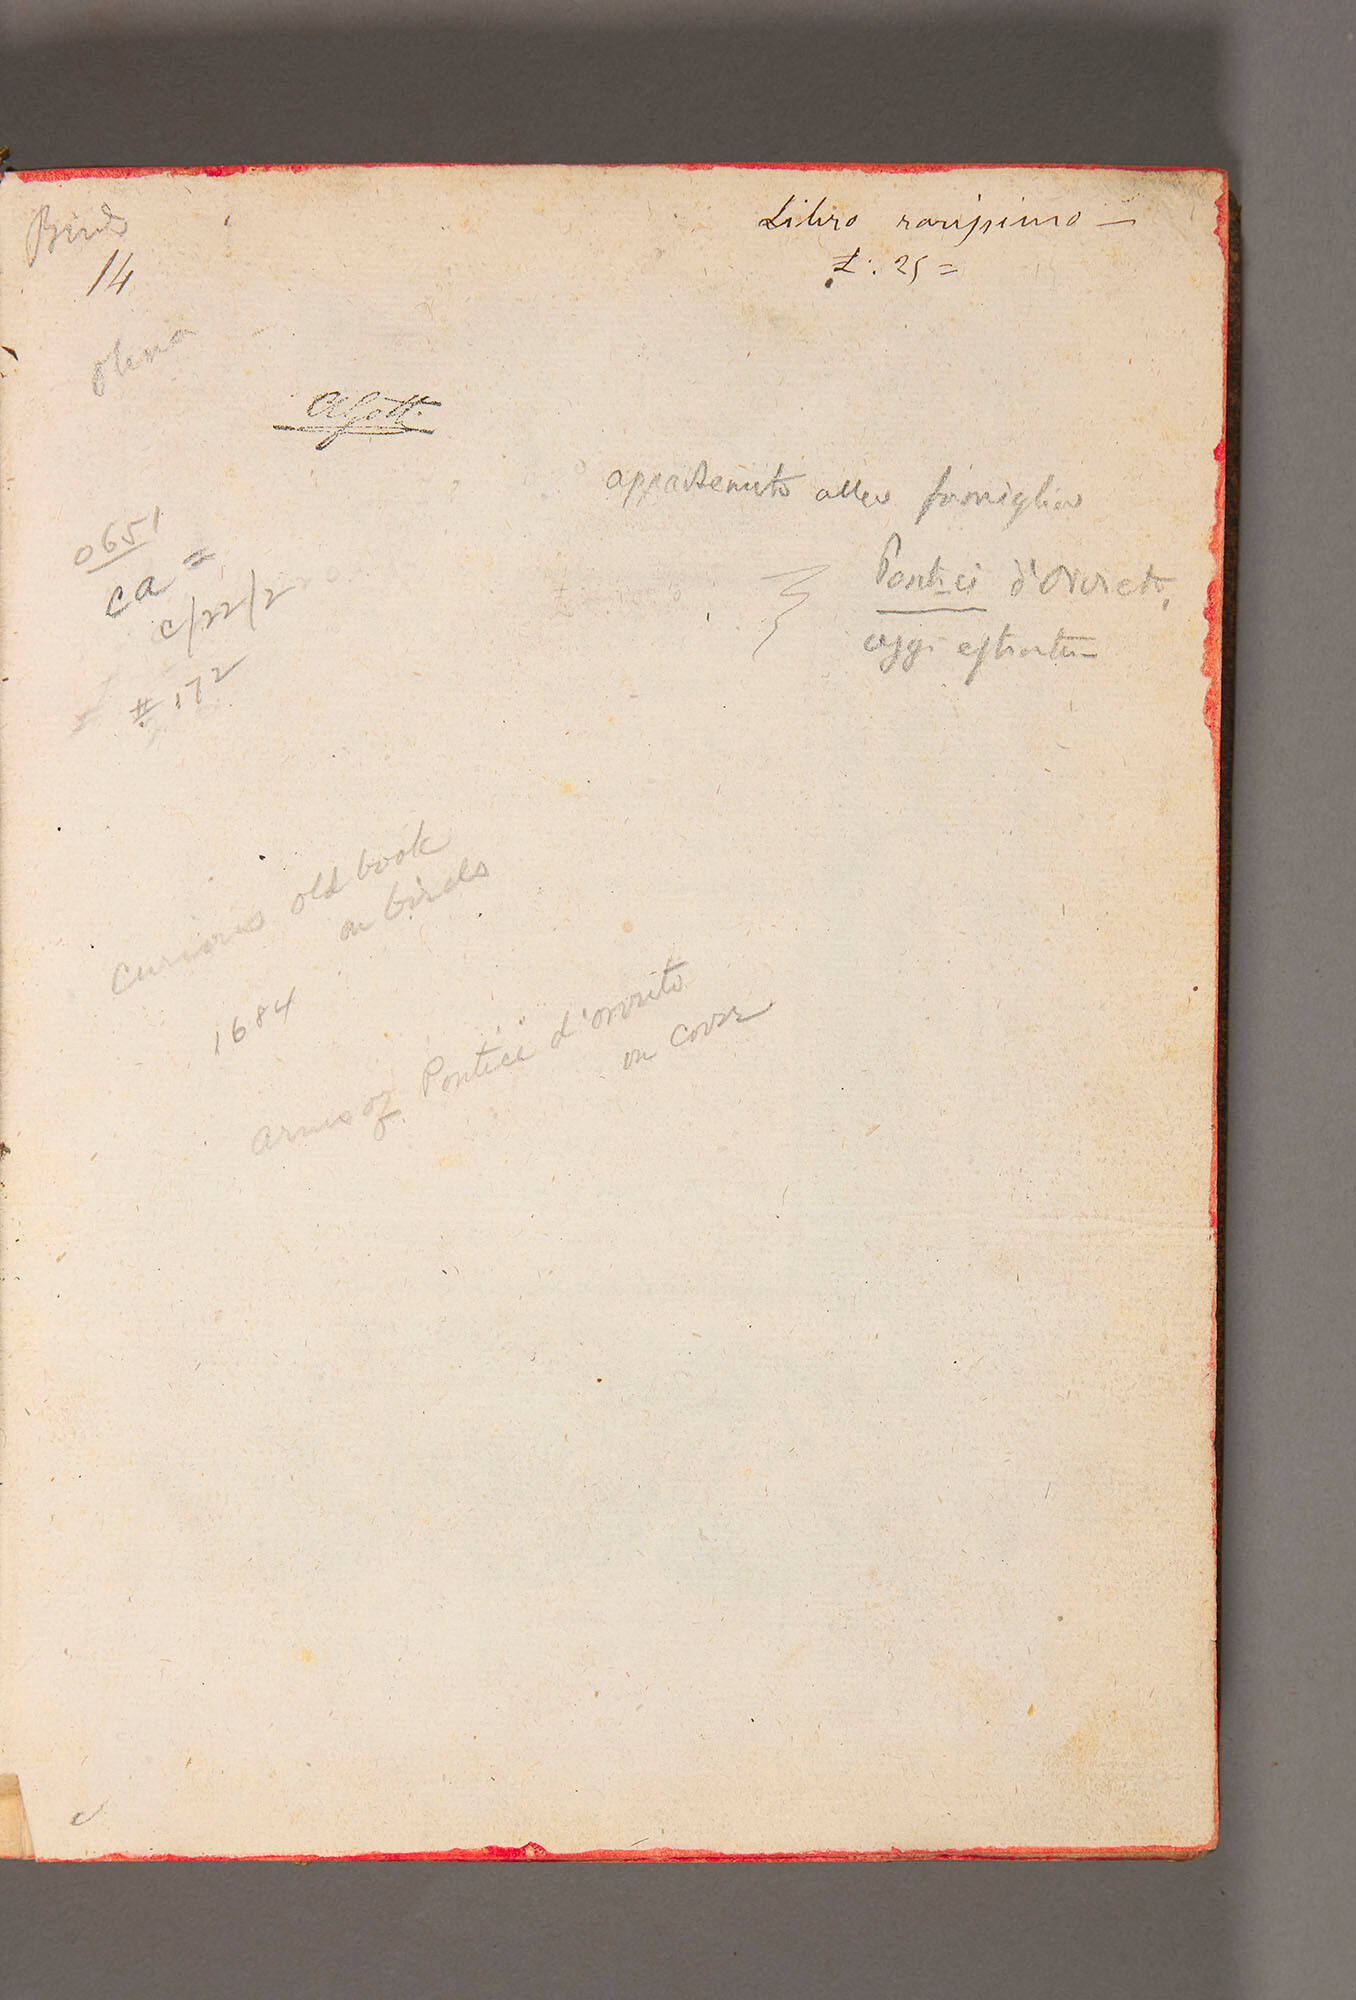 Birds
14
Olina
Libro rarissimo —
£: 25 =
appartenuto alla famiglia
Pontici d'Orvieto,
oggi estinta —
0651
ca =
c/22/2
# 172
Curious old book
on birds
1684
arms of Pontici d'orvieto
on cover
c